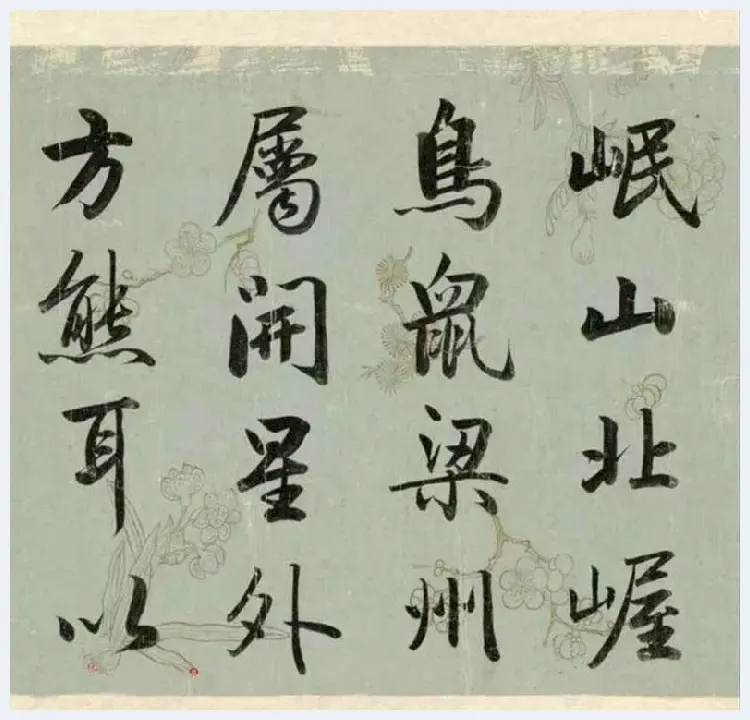 岷山北崛
鳥鼠梁州
屬開星外
方熊耳以